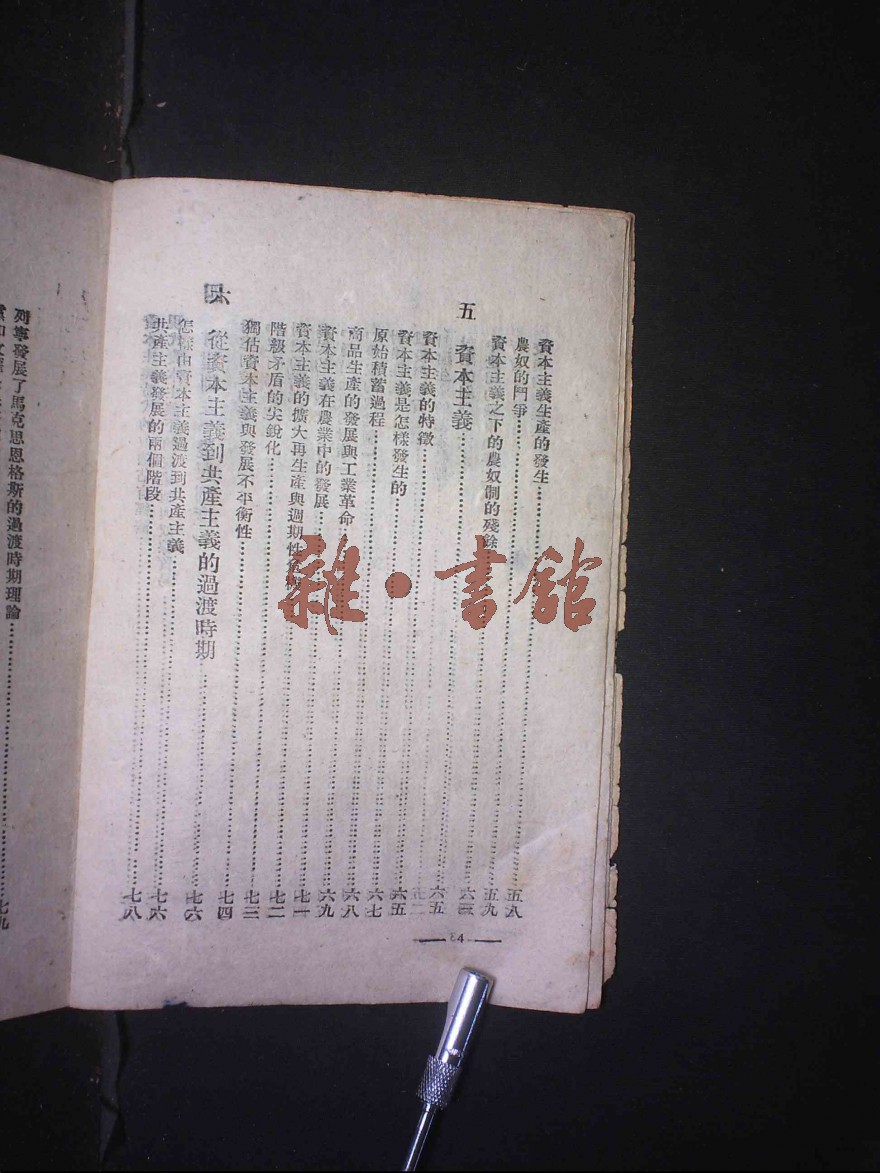 資本主義生產的發生……五八
農奴的鬥爭……五九
資本主義之下的農奴制的殘餘……
五 資本主義……六五
資本主義的特徵……六五
資本主義是怎樣發生的……六七
原始積蓄過程……六八
商品生產的發展與工業革命……六九
資本主義在農業中的發展……七一
資本主義的擴大再生產與週期性……七二
階級矛盾的尖銳化……七三
獨佔資本主義與發展不平衡性……七四
六 從資本主義到共產主義的過渡時期……七六
怎樣由資本主義過渡到共產主義……七六
共產主義發展的兩個階段……七八
列寧發展了馬克思恩格斯的過渡時期理論……七九
雜·書館